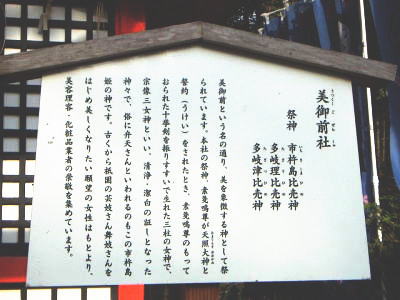 美御前社
うつくしごぜんしゃ
祭神
市杵島比売神
多岐理比売神
多岐津比売神
美御前という名の通り、美を象徴する神として祭
られています。本社の祭神、素戔嗚尊が天照大神と
誓約(うけい)をされたとき、素戔嗚尊のもって
おられた十拳剣を振りすすいで生れた三社の女神で、
宗像三女神といい、清浄・潔白の証しとなった
神々で、俗に弁天さんといわれるのもこの市杵島
姫の神です。古くから祇園の芸妓さん舞妓さんを
はじめ美しくなりたい願望の女性はもとより、
美容理容・化粧品業者の崇敬を集めています。